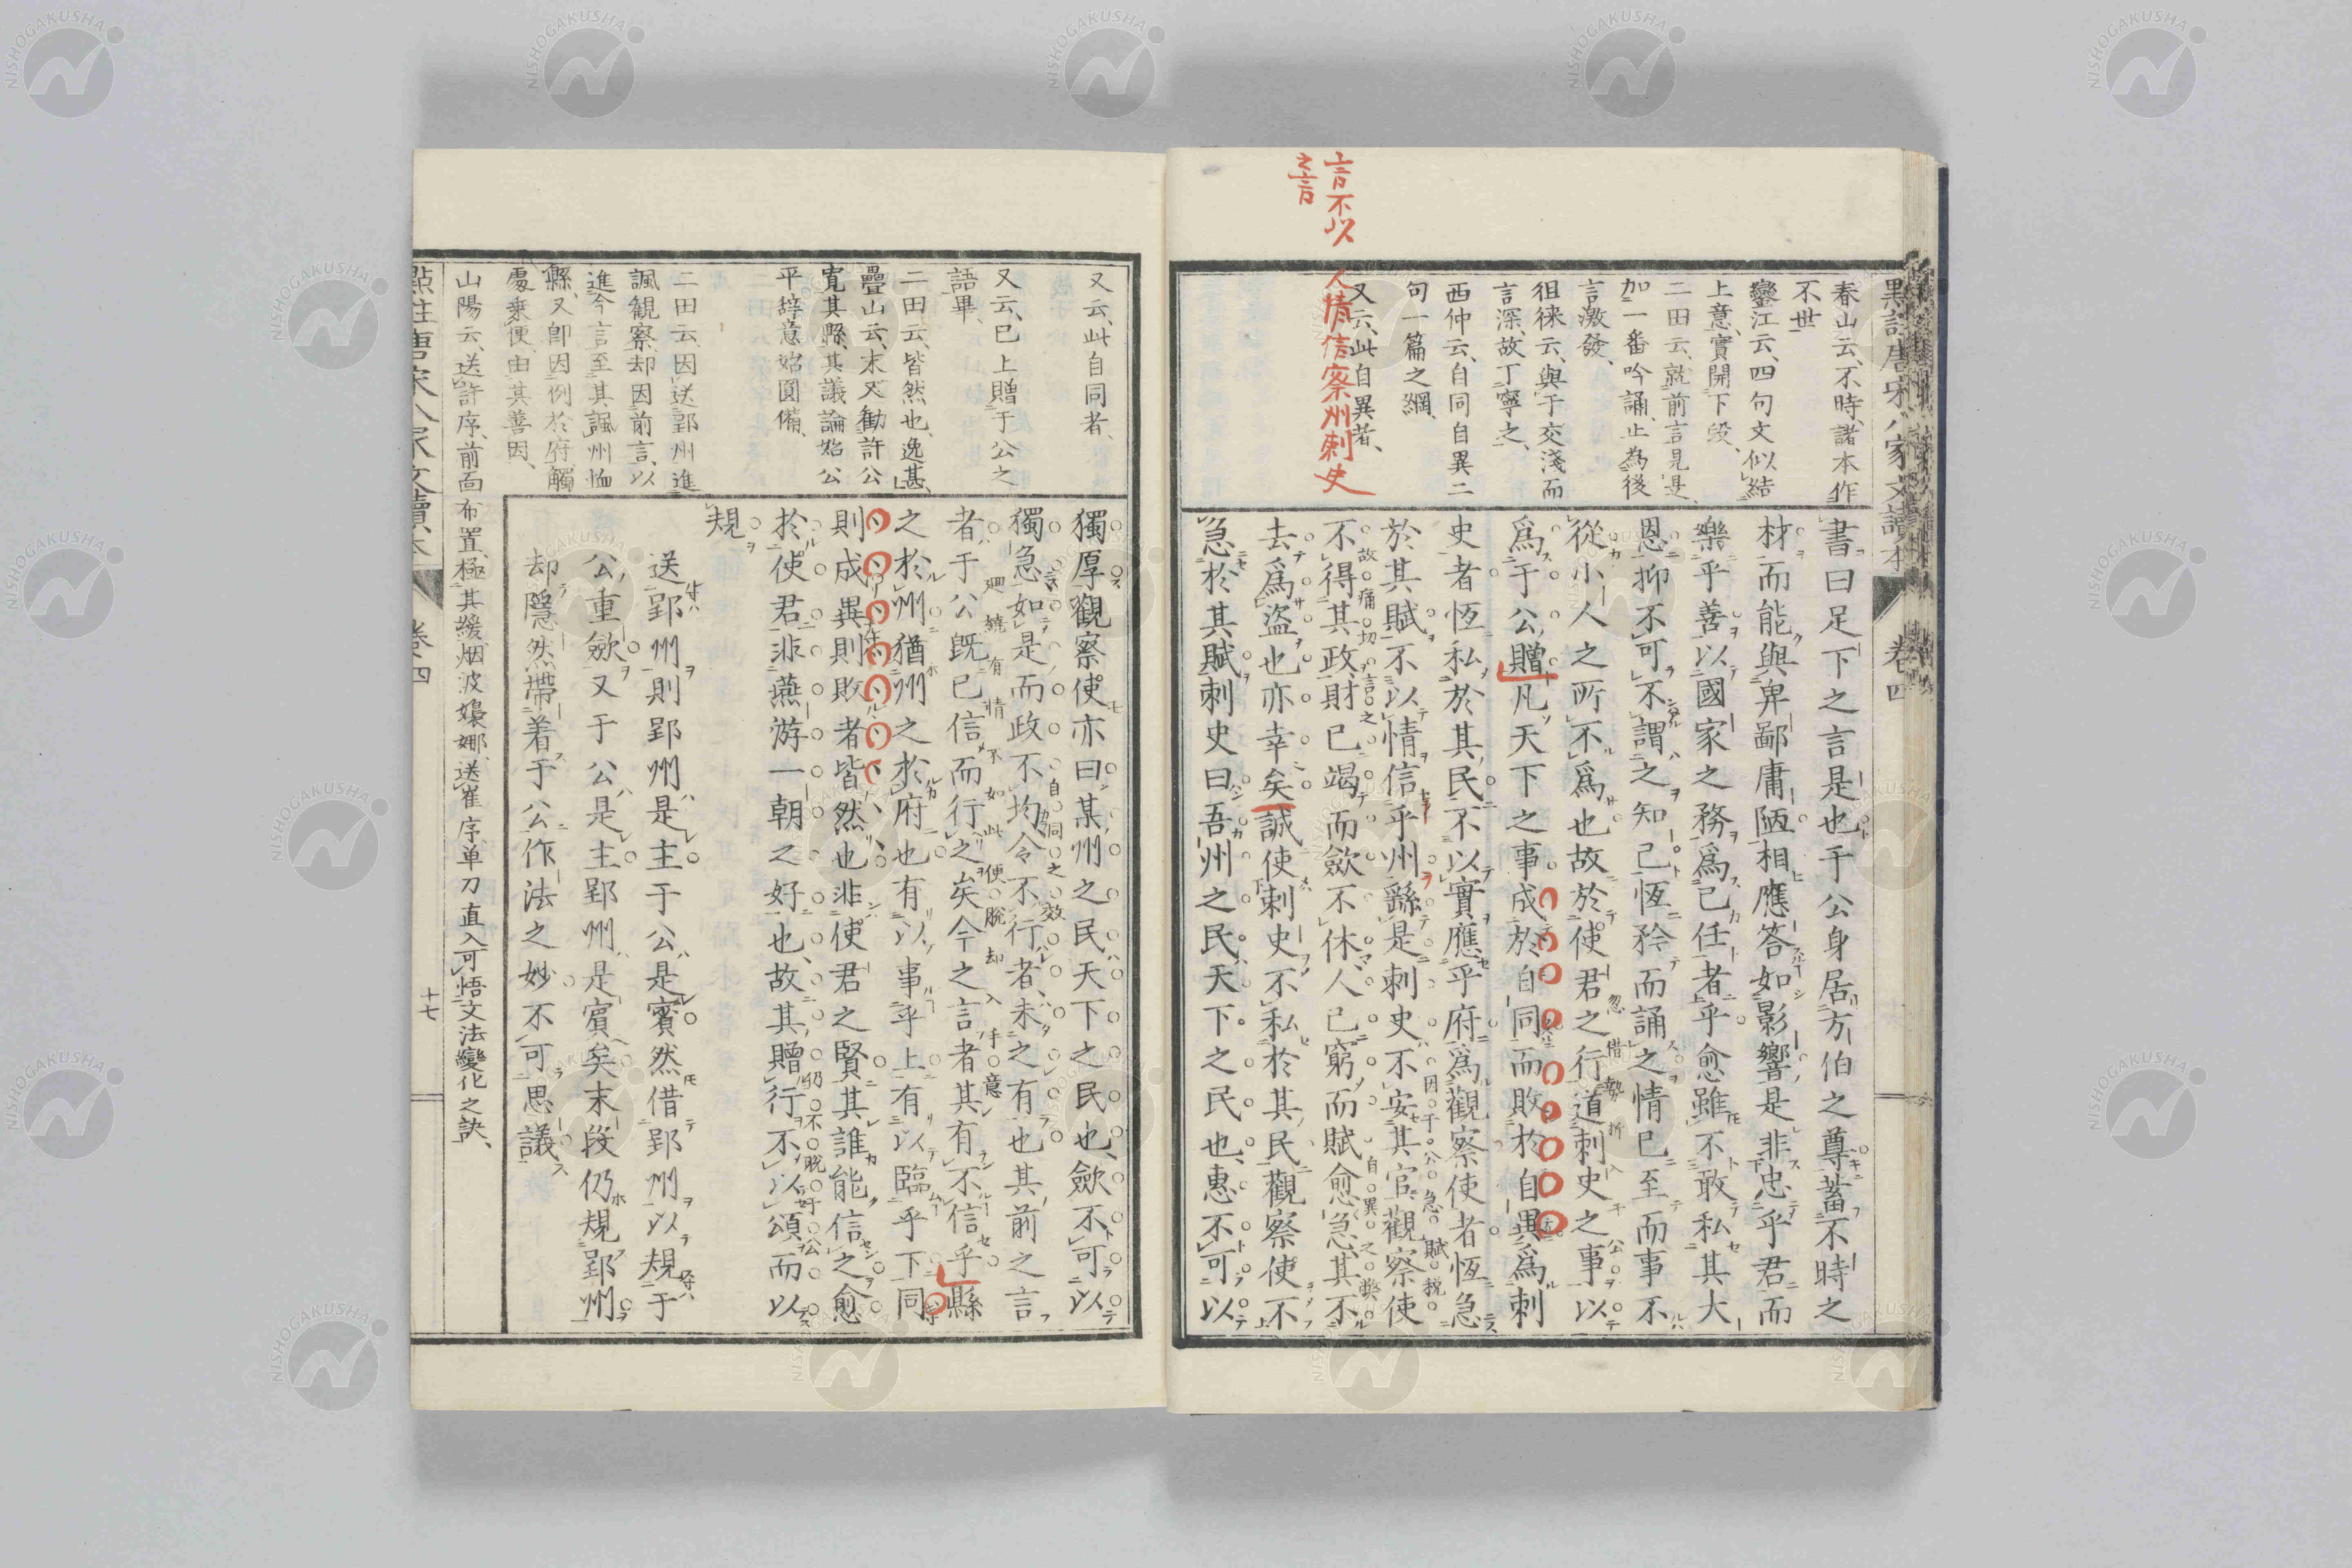 點註唐宋八家文讀本 卷四
言不以
之言
人情信察州刺史
春山云、不時、諸本作
不世
鑾江云、四句文似結
上意、實開下段、
二田云、就前言見是、
加一番吟誦、止為後
言激發、
徂徠云、與于交淺而
言深、故丁寧之、
西仲云、自同自異二
句一篇之綱、
又云、此自異者、
書曰足下之言是也于公身居方伯之尊蓄不時之
材而能與卑鄙庸陋相應答如影響是非忠乎君而
樂乎善以國家之務爲己任者乎愈雖不敢私其大
恩抑不可不謂之知己恆矜而誦之情已至而事不
從小人之所不爲也故於使君之行道刺史之事以
忽借勢折入于公
爲于公贈凡天下之事成於自同而敗於自異爲刺
史者恆私於其民不以實應乎府爲觀察使者恆急
於其賦不以情信乎州繇是刺史不安其官觀察使
因于公急賦說
不得其政財已竭而歛不休人已窮而賦愈急其不
故痛切言之
自異之獘
去爲盜也亦幸矣誠使刺史不私於其民觀察使不
急於其賦刺史曰吾州之民天下之民也惠不可以
又云、此自同者、
又云、已上贈于公之
語畢、
二田云、皆然也、逸甚、
疊山云、末又勸許公
寬其縣、其議論始公
平、辞意始圓備、
二田云、因送郢州進
諷觀察、却因前言、以
進今言、至其諷州恤
縣、又卽因例於府、觸
處乘便、由其善因、
獨厚觀察使亦曰某州之民天下之民也歛不可以
獨急如是而政不均令不行者未之有也其前之言
自同之效
者于公旣已信而行之矣今之言者其有不信乎縣
廻繞有情不如此便脫却入手意
之於州猶州之於府也有以事乎上有以臨乎下同
則成異則敗者皆然也非使君之賢其誰能信之愈
於使君非燕游一朝之好也故其贈行不以頌而以
仍不脫于公
規
送郢州則郢州是主于公是賓然借郢州以規于
公重歛又于公是主郢州是賓矣末段仍規郢州
却隱然帶着于公作法之妙不可思議
山陽云、送許序、前面布置、極其緩、烟波嬝娜、送崔序、单刀直入、可悟文法變化之訣、
點註唐宋八家文讀本 卷四 十七